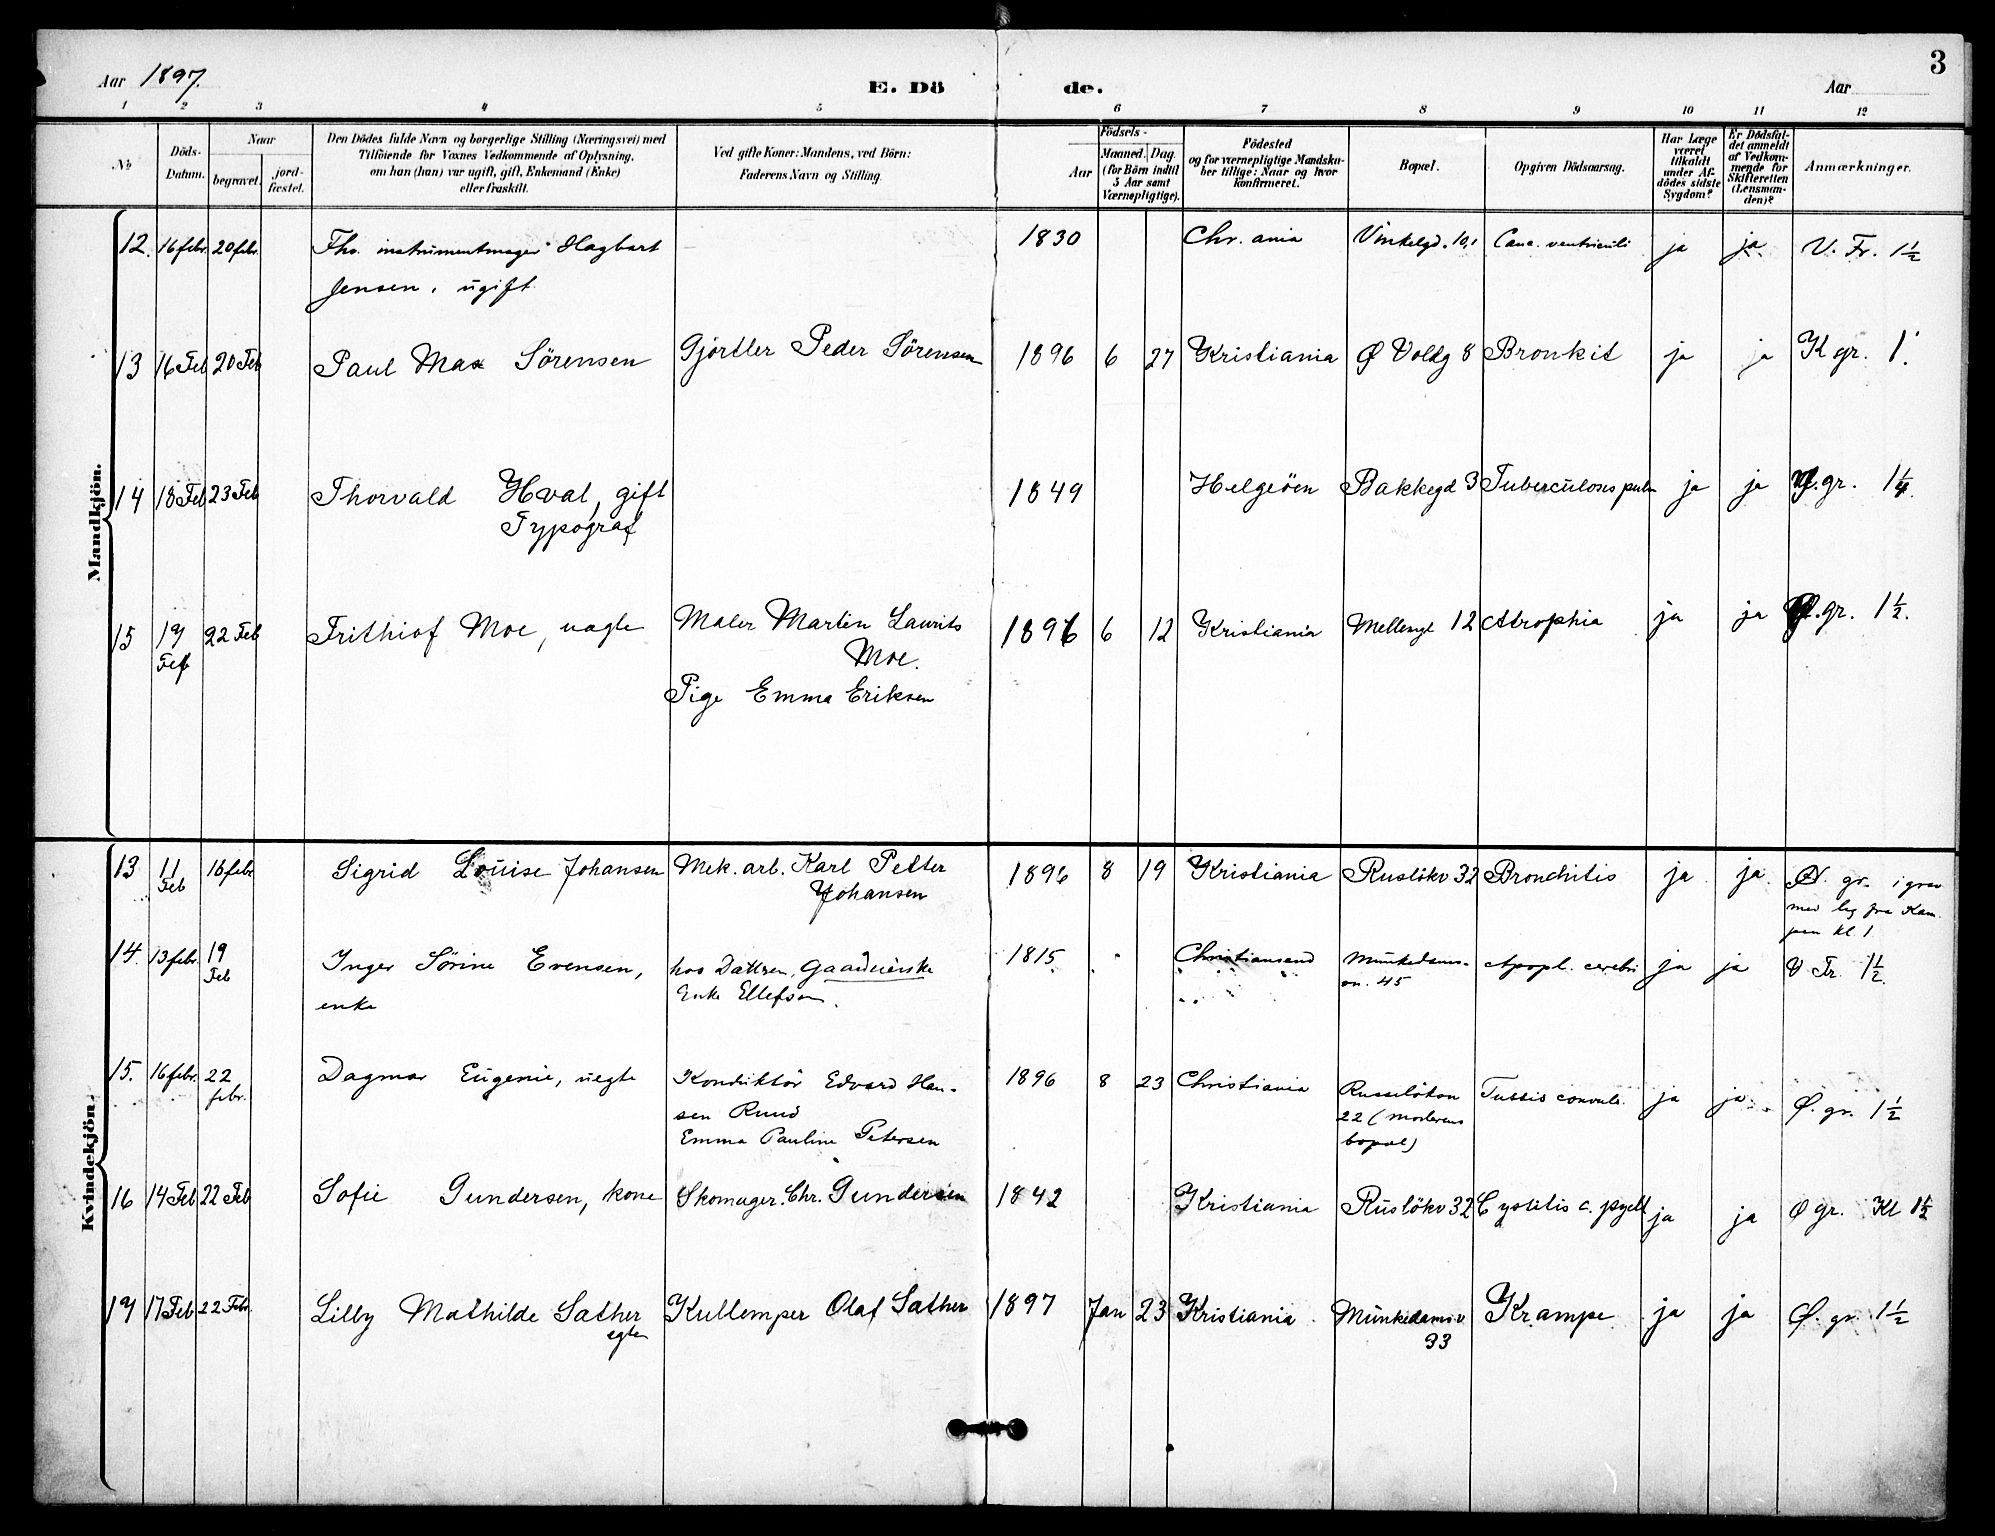 3
Aar 1897.
E. Dö de.
Aar
1 2 3 4 5 6 7 8 9 10 11 12
No
Döds-Datum.
Naar begravet. jordfæstet.
Den Dödes fulde Navn og borgerlige Stilling (Næringsvei) med Tilföiende for Voxnes Vedkommende af Oplysning, om han (hun) var ugift, gift, Enkemand (Enke) eller fraskilt.
Ved gifte Koner: Mandens, ved Börn: Faderens Navn og Stilling
Födsels- Aar Maaned. Dag. (for Börn indtil 5 Aar samt Værnepligtige).
Födested og for værnepligtige Mandskaber tillige: Naar og hvor konfirmeret.
Bopæl.
Opgiven Dödsaarsag.
Har Læge været tilkaldt under Afdödes sidste Sygdom?
Er Dödsfaldet anmeldt af Vedkommende for Skifteretten (Lensmanden)?
Anmærkninger.
Mandkjön.
12. 16 febr. 20 febr. Fhv. instrumentmager Hagbart — 1830 Chr.ania Vinkelgd. 10, Canc. ventriculi ja ja V. Fr. 1½
Jensen, ugift
13 16 Feb 20 Feb Paul Max Sörensen Gjörtler Peder Sörensen 1896 6 27 Kristiania Ø Voldg 8 Bronkit ja ja K gr. 1.
14 18 Feb 23 Feb Thorvald Hval, gift 1849 Helgeöen Bakkegd 3 Tuberculous pulm ja ja gr. 1¼.
Typograf
15 17 Feb 22 Feb Frithiof Moe, uægte Maler Martin Laurits 1896 6 12 Kristiania Mellemgt 12 Atrophia ja ja gr. 1½.
Moe.
Pige Emma Eriksen
Kvindekjön.
13 11 Feb 16 febr Sigrid Louise Johansen Mek. arb. Karl Petter 1896 8 19 Kristiania Ruslökv 32 Bronchitis ja ja. gr. i grav
Johansen
med lig fra Kam-
pen kl. 1
14. 13 febr. 19 Feb Inger Sörine Evensen, hos Dattren, Gaardmenske 1815 Christiansand Munkedams- Apopl. cerebri ja ja V Fr. 1½.
enke Enke Ellefsen. vn. 45
15. 16 febr. 22 febr. Dagmar Eugenie, uegte Konduktör Edvard Han- 1896 8 23 Christiania Russelökon Tussis convuls. ja ja. Ø. gr. 1½
sen Ruud 22 (moderens
Emma Pauline Petersen bopæl)
16 14 Feb 22 Feb Sofie Gundersen, kone Skomager. Chr. Gundersen 1842 Kristiania Ruslökv 32 Cystitis c. pyelit ja ja Ø gr. Kl 1½
17 17 Feb 22 Febr. Lilly Mathilde Sæther Kullemper Olaf Sæther 1897 Jan 23 Kristiania Munkedamsv Krampe ja ja Ø. gr. 1½
egte 93